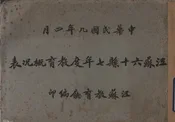 月四年九國民華中
表況概育教度年七縣十六蘇江
印編廳育教蘇江